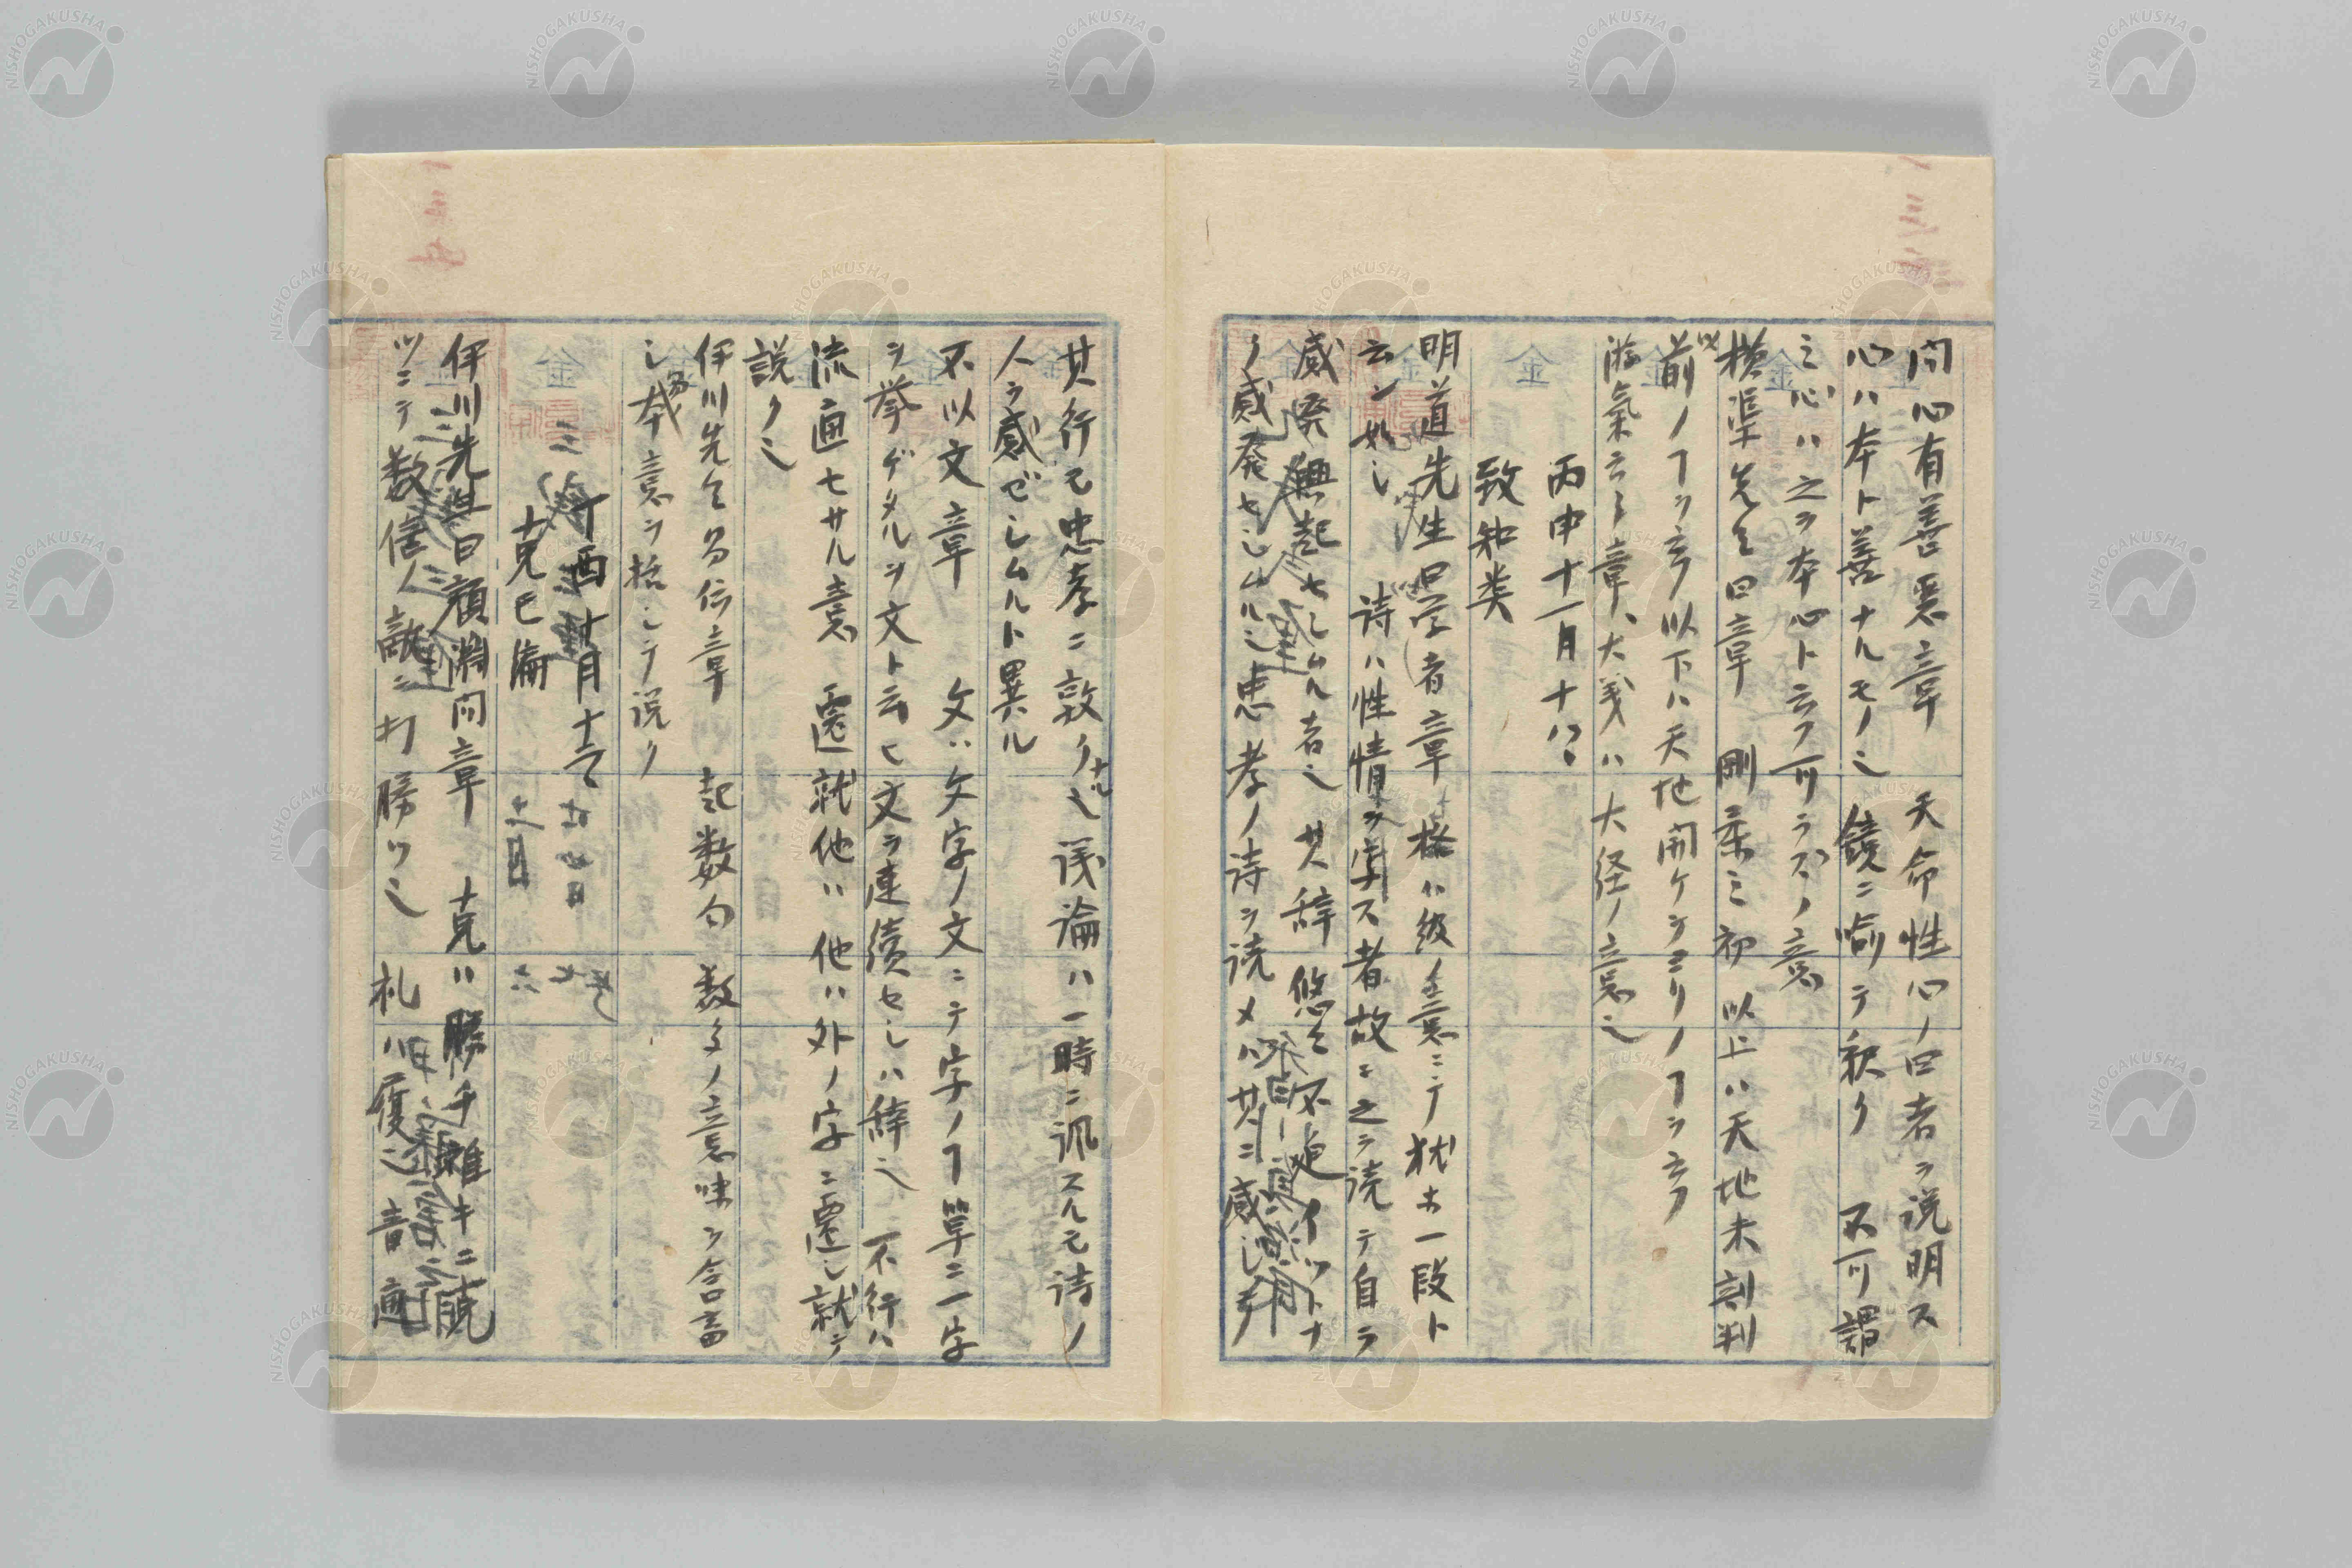 問心有善惡章　天命性心ノ四者ヲ説明ス
心ハ本ト善ナルモノ也　鏡ニ喩テ釈ク　不可謂
之心ハ之ヲ本心ト云フ可ラズノ意
横渠先生曰章　剛柔之初　以上ハ天地未剖判
以前ノヿヲ言フ以下ハ天地開ケシヨリノヿヲ言フ
游氣云々章、大義ハ大経ノ意也
丙申十一月十八日
致知類
明道先生曰学者章　格ハ級ノ意ニテ猶ホ一段ト
云シ如シ　詩ハ性情ヲ学ス者故ニ之ヲ読テ自ラ
感発興起セシムル者也　其辞　悠々　不迫
ノ感発セシムル也忠孝ノ詩ヲ読メハ其ニ感シテ
其行モ忠孝ニ敦クナル也議論ハ一時ニ諷スルモ詩ノ
人ヲ感ゼシムルト異ル
不以文章　文ハ文字ノ文ニテ字ノヿ單ニ一字
ヲ挙ゲタルヲ文ト云ヒ文ヲ連續セシハ辞也　不行ハ
流通セサル意　遷就他ハ　他ハ外ノ字ニ遷シ就テ
説ク也
伊川先生易伝章　起数句　数多ノ意味ヲ含蓄
シ本意ヲ括シテ説ク
丁酉十月十六日
克己篇
伊川先生曰顔淵問章　克ハ勝チ難キニ
ツニテ数倍人敵ニ打勝ツ也　礼ハ履也音通